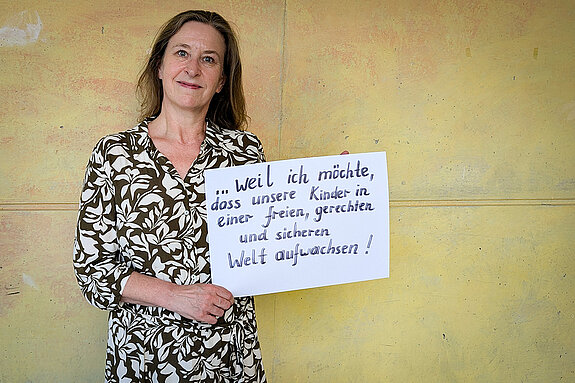 ... weil ich möchte,
dass unsere Kinder in
einer freien, gerechten
und sicheren
Welt aufwachsen!